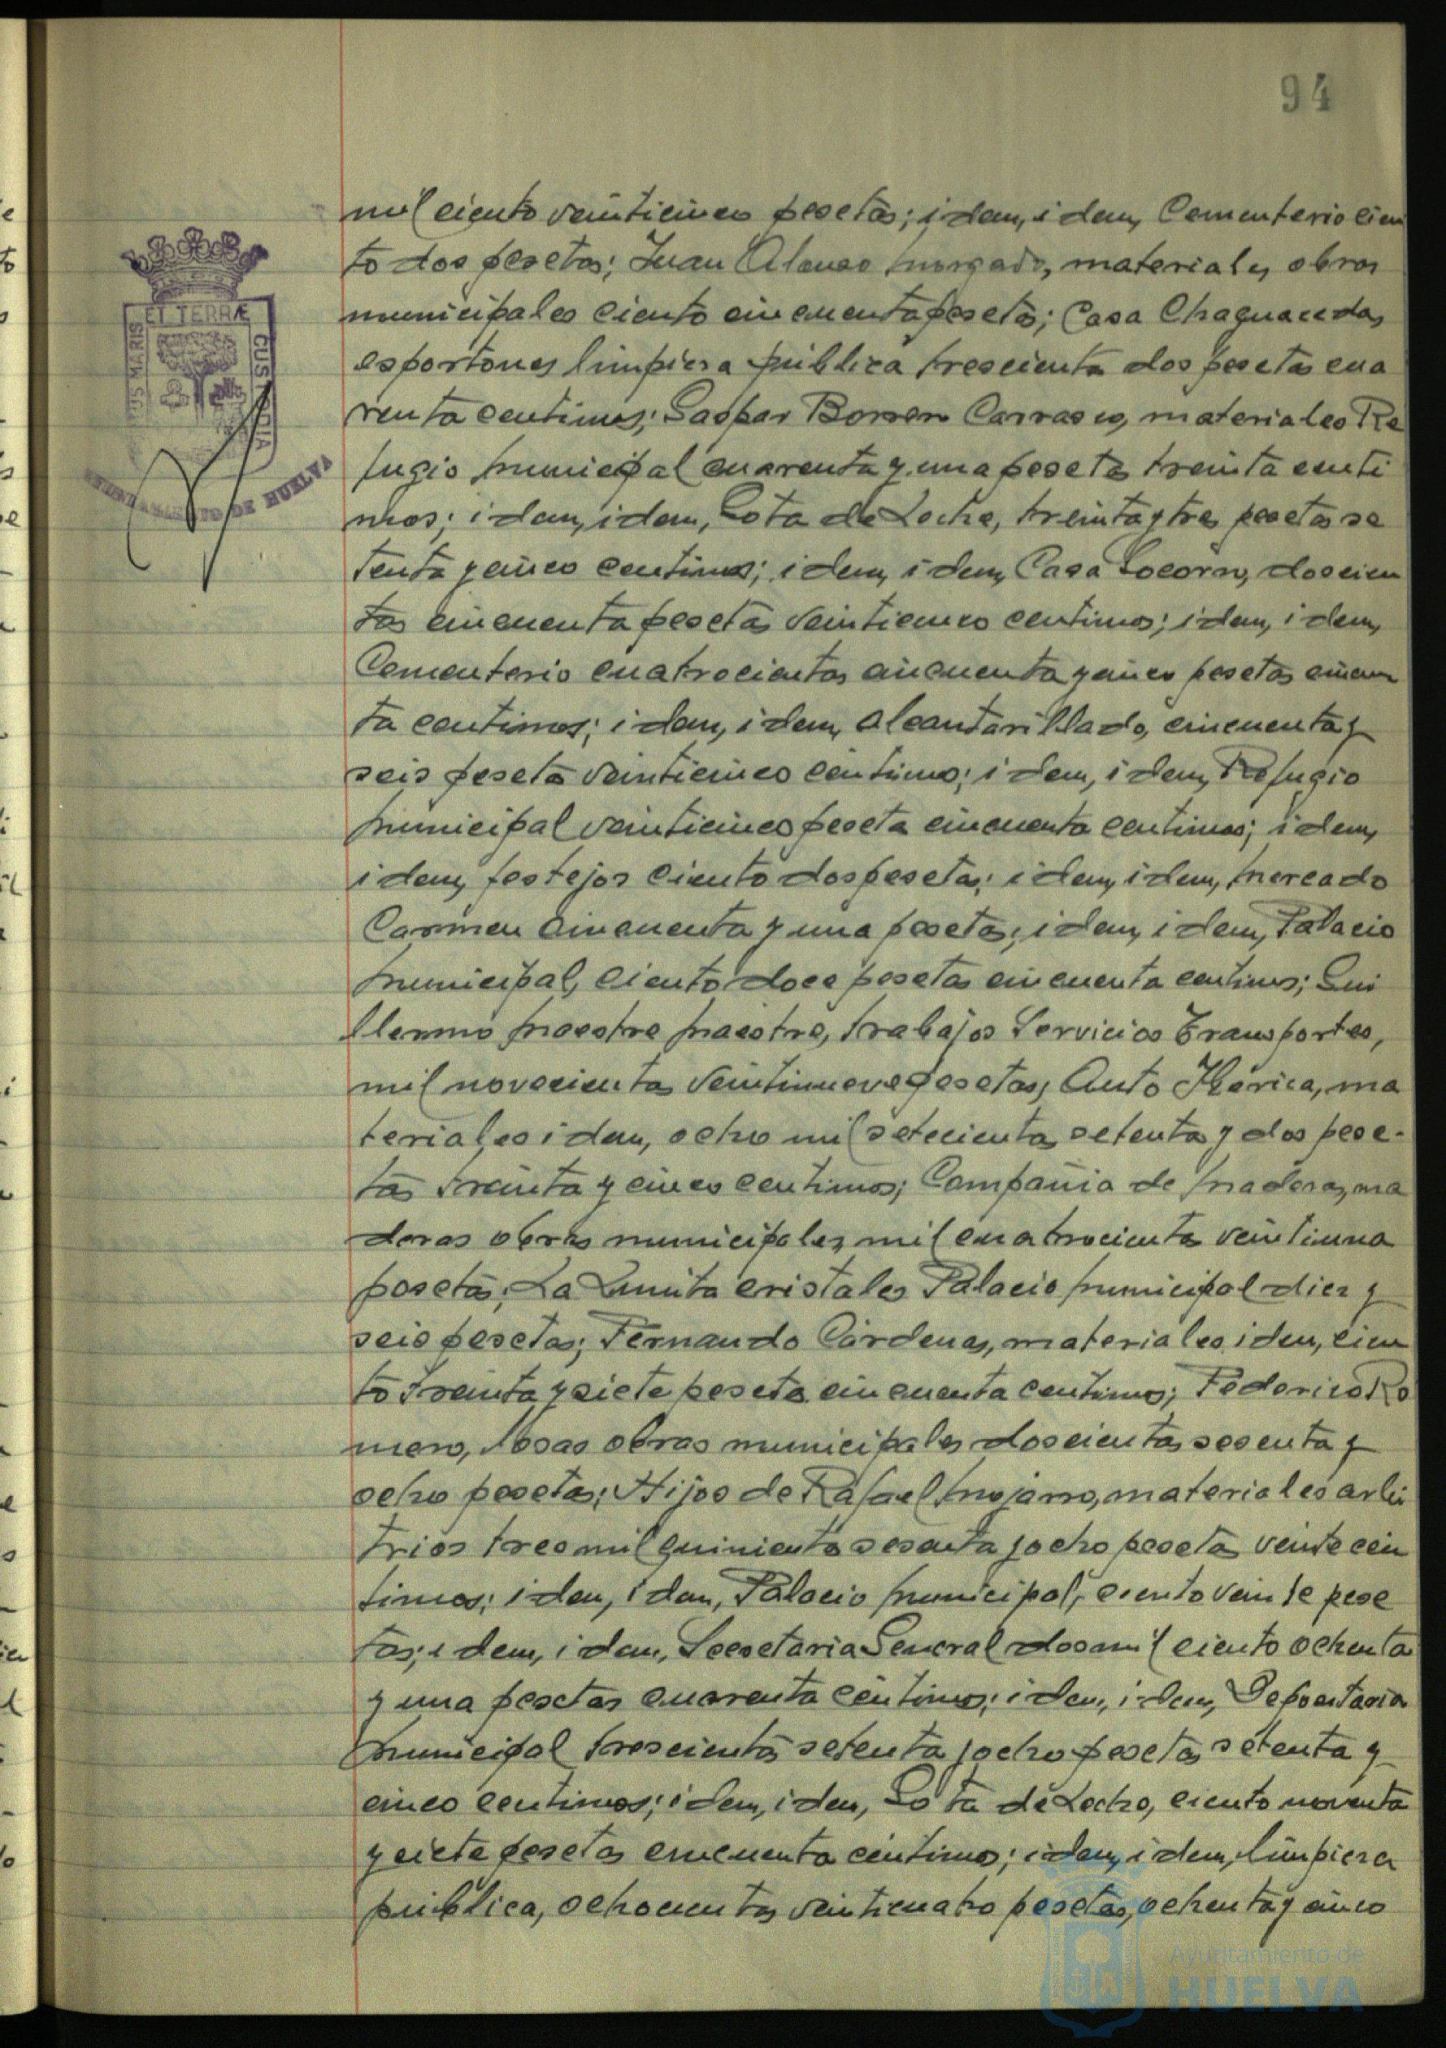 94
mil ciento veinticinco pesetas; idem, idem, Cementerio cien
to dos pesetas; Juan Alonso Morgado, materiales obras
municipales ciento cincuenta pesetas; Casa Chaguaceda,
esportones limpieza pública trescientas dos pesetas cua
renta centimos; Gaspar Borrero Carrasco, materiales Re
fugio Municipal cuarenta y una pesetas treinta centi
mos; idem, idem, Gota de Leche, treinta y tres pesetas se
tenta y cinco centimos; idem, idem, Casa Socorro, doscien
tas cincuenta pesetas veinticinco centimos; idem, idem,
Cementerio cuatrocientas cincuenta y cinco pesetas cincuen
ta centimos; idem, idem, alcantarillado, cincuenta y
seis pesetas veinticinco centimos; idem, idem, Refugio
Municipal veinticinco pesetas cincuenta centimos; idem,
idem, festejos ciento dos pesetas; idem, idem, Mercado
Carmen cincuenta y una pesetas; idem, idem, Palacio
Municipal, ciento doce pesetas cincuenta centimos; Gui
llermo Maestre Maestre, trabajos Servicios Transportes,
mil novecientas veintinueve pesetas; Auto Iberica, ma
teriales idem, ocho mil setecientas setenta y dos pese-
tas treinta y cinco centimos; Compañia de Maderas, ma
deras obras municipales, mil cuatrocientas veintiuna
pesetas; La Lunita cristales Palacio Municipal diez y
seis pesetas; Fernando Cárdenas, materiales idem, cien
to treinta y siete pesetas cincuenta centimos; Federico Ro
mero, losas obras municipales doscientas sesenta y
ocho pesetas; Hijos de Rafael Mojarro, materiales arbi
trios tres mil quinientas sesenta y ocho pesetas veinte cen
timos; idem, idem, Palacio Municipal, ciento veinte pese
tas; idem, idem, Secretaria General dos mil ciento ochenta
y una pesetas cuarenta centimos; idem, idem, Depositaria
Municipal trescientas setenta y ocho pesetas setenta y
cinco centimos; idem, idem, Gota de Leche, ciento noventa
y siete pesetas cincuenta centimos; idem, idem, limpieza
pública, ochocientas veinticuatro pesetas, ochenta y cinco
ET TERRÆ
US MARIS
CUSTODIA
AYUNTAMIENTO DE HUELVA
Ayuntamiento de
HUELVA